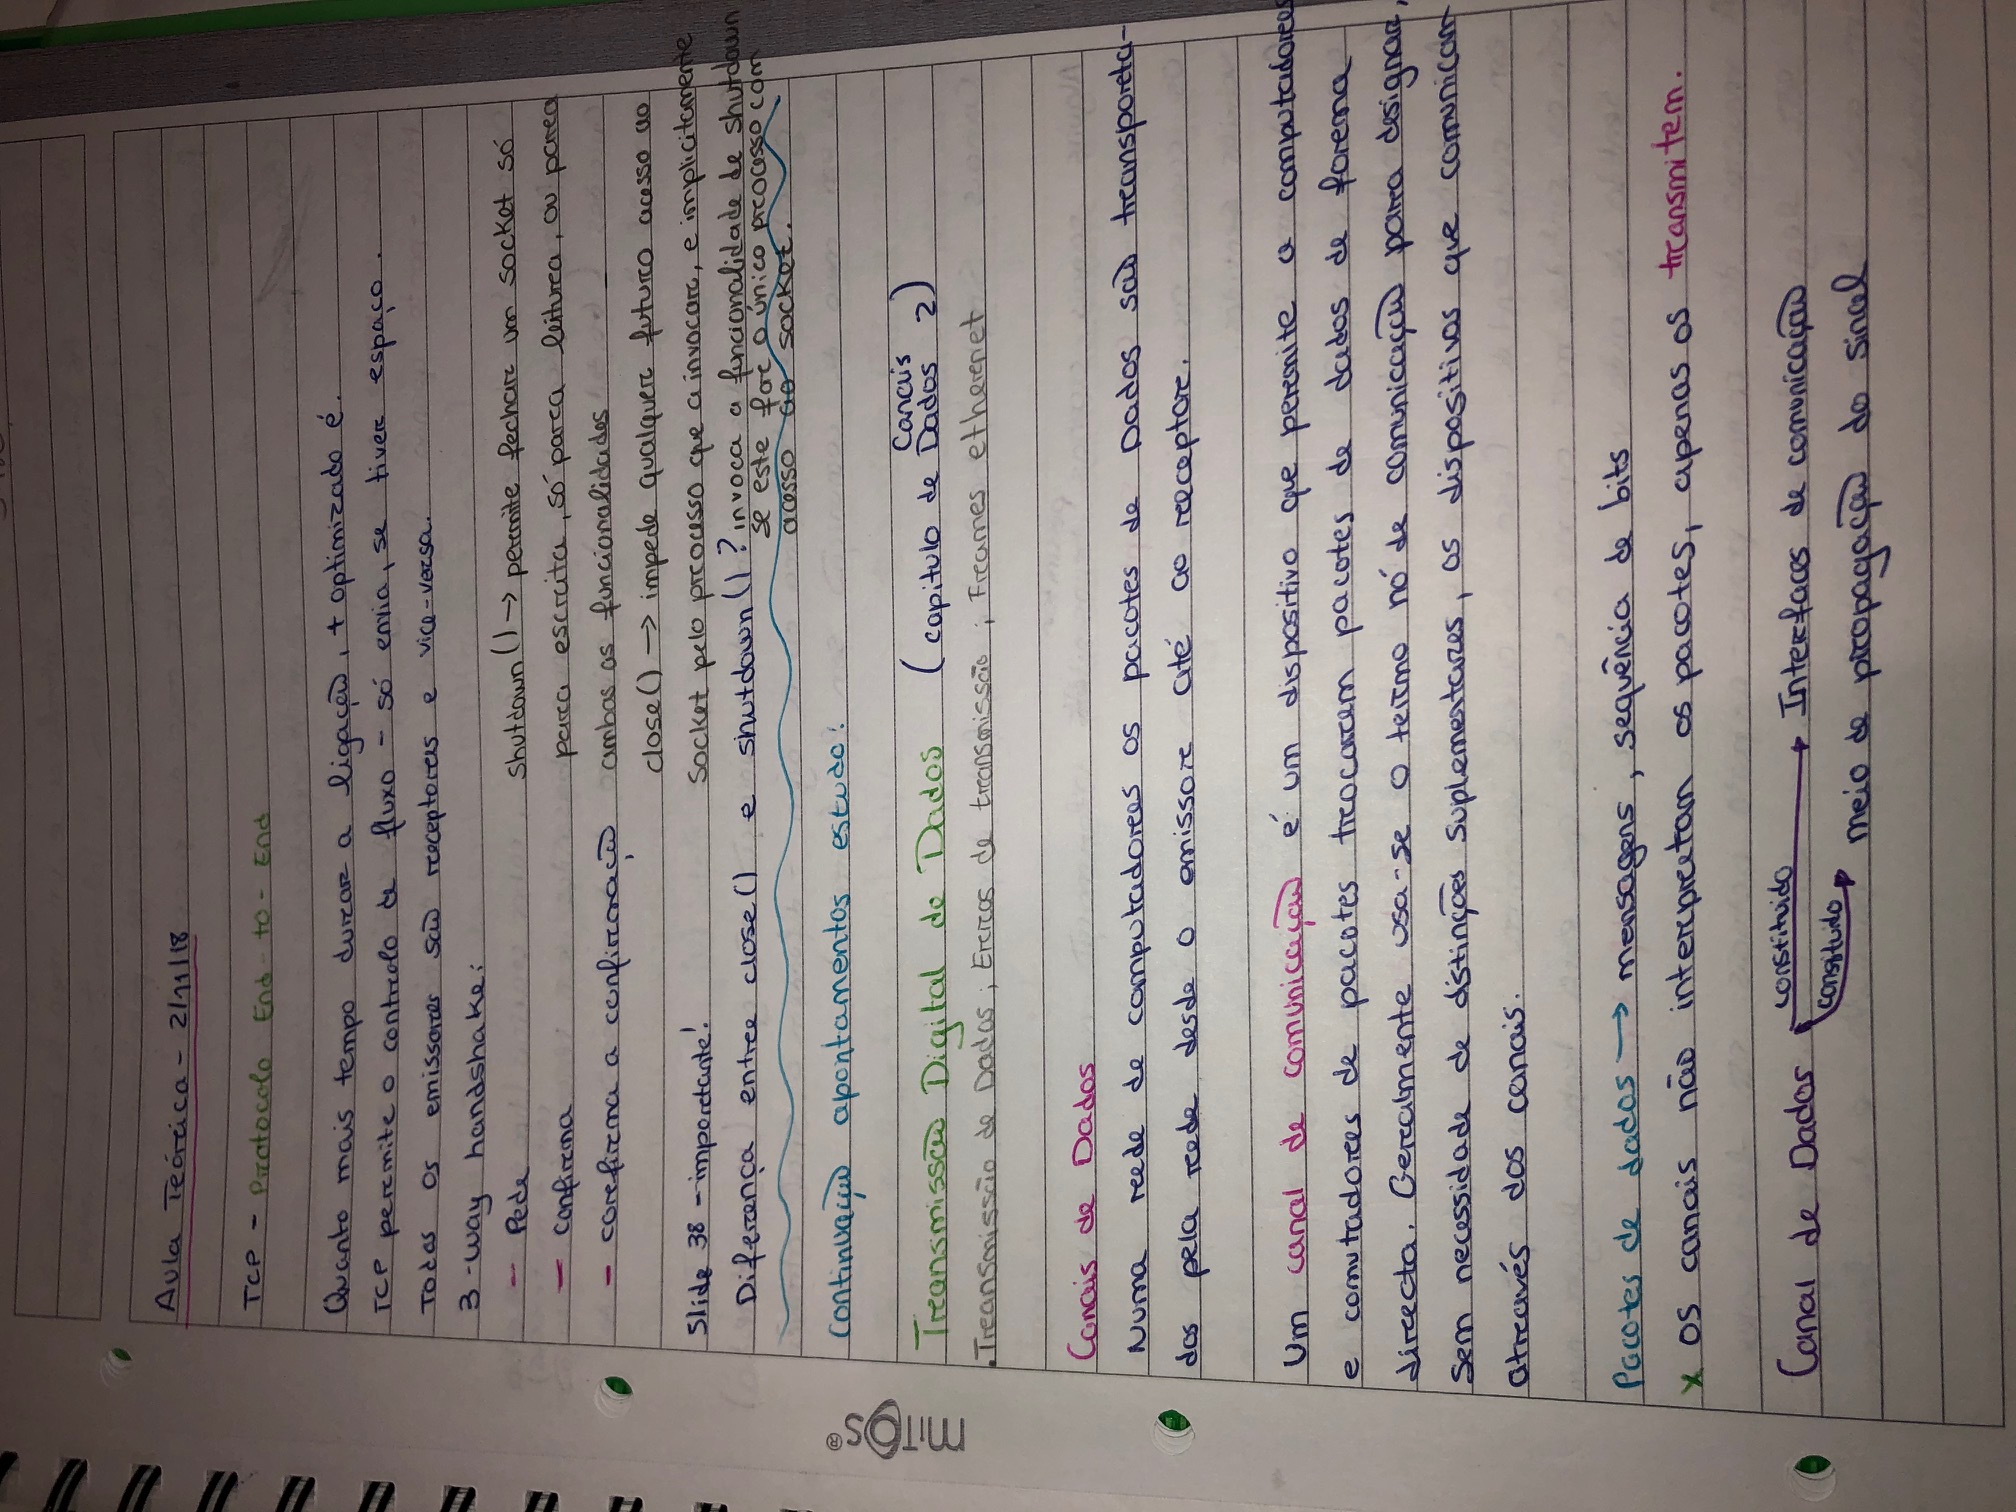 Aula Teórica - 2/11/18
TCP - Protocolo End-to-End
Quanto mais tempo durar a ligação, + optimizado é.
TCP permite o controlo de fluxo - só envia, se tiver espaço.
Todos os emissores são receptores e vice-versa.
3-way handshake:
- Pede
- confirma
- corefirma a confirmação
shutdown() → permite fechar um socket só
para escrita, só para leitura, ou para
ambas as funcionalidades
close() → impede qualquer futuro acesso ao
socket pelo processo que a invocar, e implicitamente
invoca a funcionalidade de shutdown
se este for o único processo com
acesso ao socket.
Slide 38 - importante!
Diferença entre close() e shutdown()?
Continuação apontamentos estudo:
Transmissão Digital de Dados (capitulo de Canais Dados 2)
.Transmissão de Dados; Erros de transmissão; Frames ethernet
Canais de Dados
Numa rede de computadores os pacotes de Dados são transporta-
dos pela rede desde o emissor até ao receptor.
Um canal de comunicação é um dispositivo que permite a computadores
e comutadores de pacotes trocarem pacotes de dados de forma
directa. Geralmente usa-se o termo nó de comunicação para designar,
sem necessidade de distinções suplementares, os dispositivos que comunicam
através dos canais.
Pacotes de dados → mensagens, sequência de bits
x Os canais não interpretam os pacotes, apenas os transmitem.
Canal de Dados constituido → Interfaces de comunicação
constituido → meio de propagação do sinal
mitos®